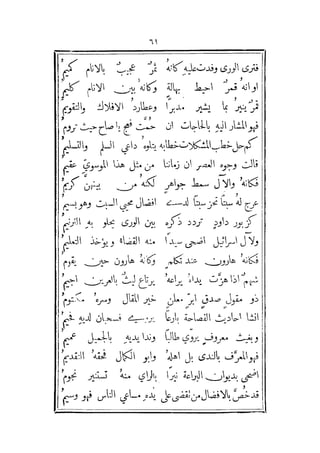 ٦١
فترى الورى وفدت عليه كانه ثمرٌ عجيبٌ بالانام كميمُ
او انه قمرٌ احيط بهالةٍ وكانه بين الانام كليمُ
قمرٌ ينيرُ بما يشير مدبرًا وعطاردُ الافلاك والتقويمُ
فهو المشار اليهِ بالحاجات ان حُمَّت فعج يا صاح حيث ترومُ
كم حل خطب المشكلات خطابه يتلوهُ داعي السلم والتسليمُ
قالت وجوه العصر ان زماننا من مثل هذا الموسويّ عقيم
فكانهُ والآل سمط جواهرٍ لكنه من بينهنَّ كريمُ
عرج له سبتًا تجز سبتًا لدى افضال محيي السبت وهو يسيمُ
كزبور داودٍ تردد ذكره بين الورى يحلو به الترنيمُ
ولآل اسرائيل اضحى سيدًا منه القضاءُ ويؤخذ التعليمُ
فكانهُ هارون عند تكلمٍ وكانهُ هارون حين يقومُ
شهمٌ اذا هزَّت يداهُ يراعهُ يرتاع ليثٌ بالعرين اجيمُ
ذو مقولٍ صدقٍ ابرّ معلنٍ خير المقال وسرهُ مكتومُ
انشا احاديث الفصاحة بارعًا فسحبان لديهِ فحيمُ
ويغيث معروف يروّي طالبًا ونداه يديهِ بالجميل عميم
فهو المعرَّف بالندى بل اهلهُ وابو الكمال فحقهُ التقديمُ
اضحى بديوان البراعة نيرًا بالراي منهُ تستنير نجومُ
قد خُصَّ بالافضال من نقضى على مساعي الناس فهو وسيمُ